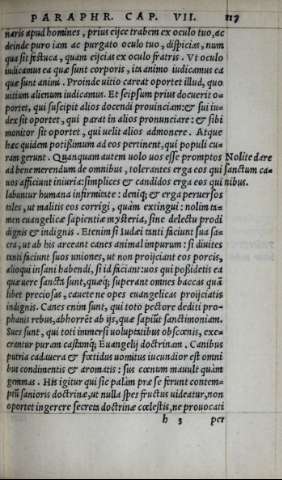 PARAPHR. CAP. VII. 117
naris apud homines, prius eijce trabem ex oculo tuo, ac
deinde puro iam ac purgato oculo tuo, dispicias, num
qua sit festuca, quam eijcias ex oculo fratris. Vt oculo
iudicamus ea quæ sunt corporis, ita animo iudicamus ea
quæ sunt animi. Proinde uitio careat oportet illud, quo
uitium alienum iudicamus. Et seipsum prius docuerit o-
portet, qui suscipit alios docendi prouinciam: & sui iu-
dex sit oportet, qui parat in alios pronunciare: & sibi
monitor sit oportet, qui uelit alios admonere. Atque
hæc quidem potißimum ad eos pertinent, qui populi cu-
ram gerunt. Quanquam autem uolo uos esse promptos
ad benemerendum de omnibus, tolerantes erga eos qui
uos afficiunt iniuria: simplices & candidos erga eos qui
labuntur humana infirmitate: deniq; & erga peruersos
tales, ut malitis eos corrigi, quàm extingui: nolim ta-
men euangelicæ sapientiæ mysteria, sine delectu prodi
dignis & indignis. Etenim si Iudæi tanti faciunt sua sa-
cra, ut ab his arceant canes animal impurum: si diuites
tanti faciunt suos uniones, ut non proijciant eos porcis,
alioqui insani habendi, si id faciant: uos qui poßidetis ea
quæ uere sancta sunt, quæq; superant omnes baccas quã
libet preciosas, cauete ne opes euangelicas proijciatis
indignis. Canes enim sunt, qui toto pectore dediti pro-
phanis rebus, abhorrēt ab ijs, quæ sapiūt sanctimoniam.
Sues sunt, qui toti immersi uoluptatibus obscœnis, exe-
crantur puram castamq; Euangelij doctrinam. Canibus
putria cadauera & fœtidus uomitus iucundior est omni
bus condimentis & aromatis: sus cœnum mauult quàm
gemmas. His igitur qui sic palàm præ se ferunt contem-
ptū sanioris doctrinæ, ut nulla spes fructus uideatur, non
oportet ingerere secreta doctrinæ cœlestis, ne prouocati
h 3 per
Nolite dare
sanctum ca-
nibus.